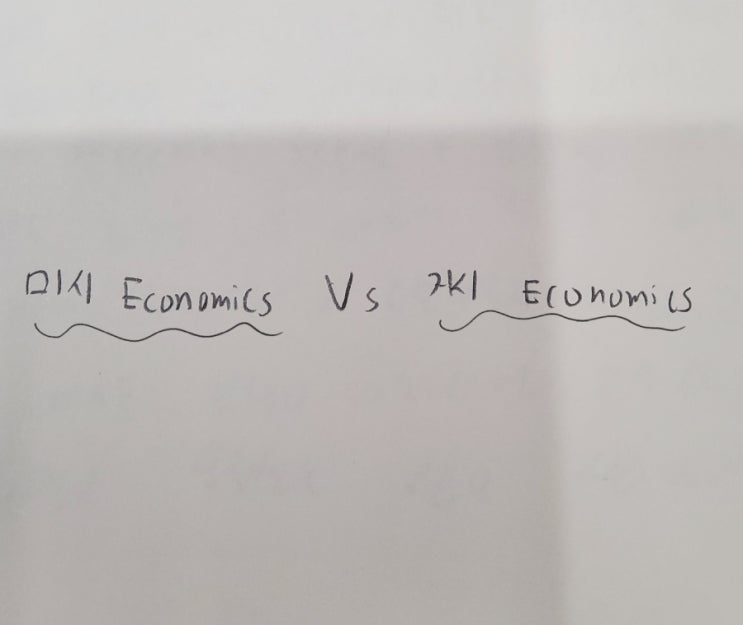 미시 Economics Vs 거시 Economics